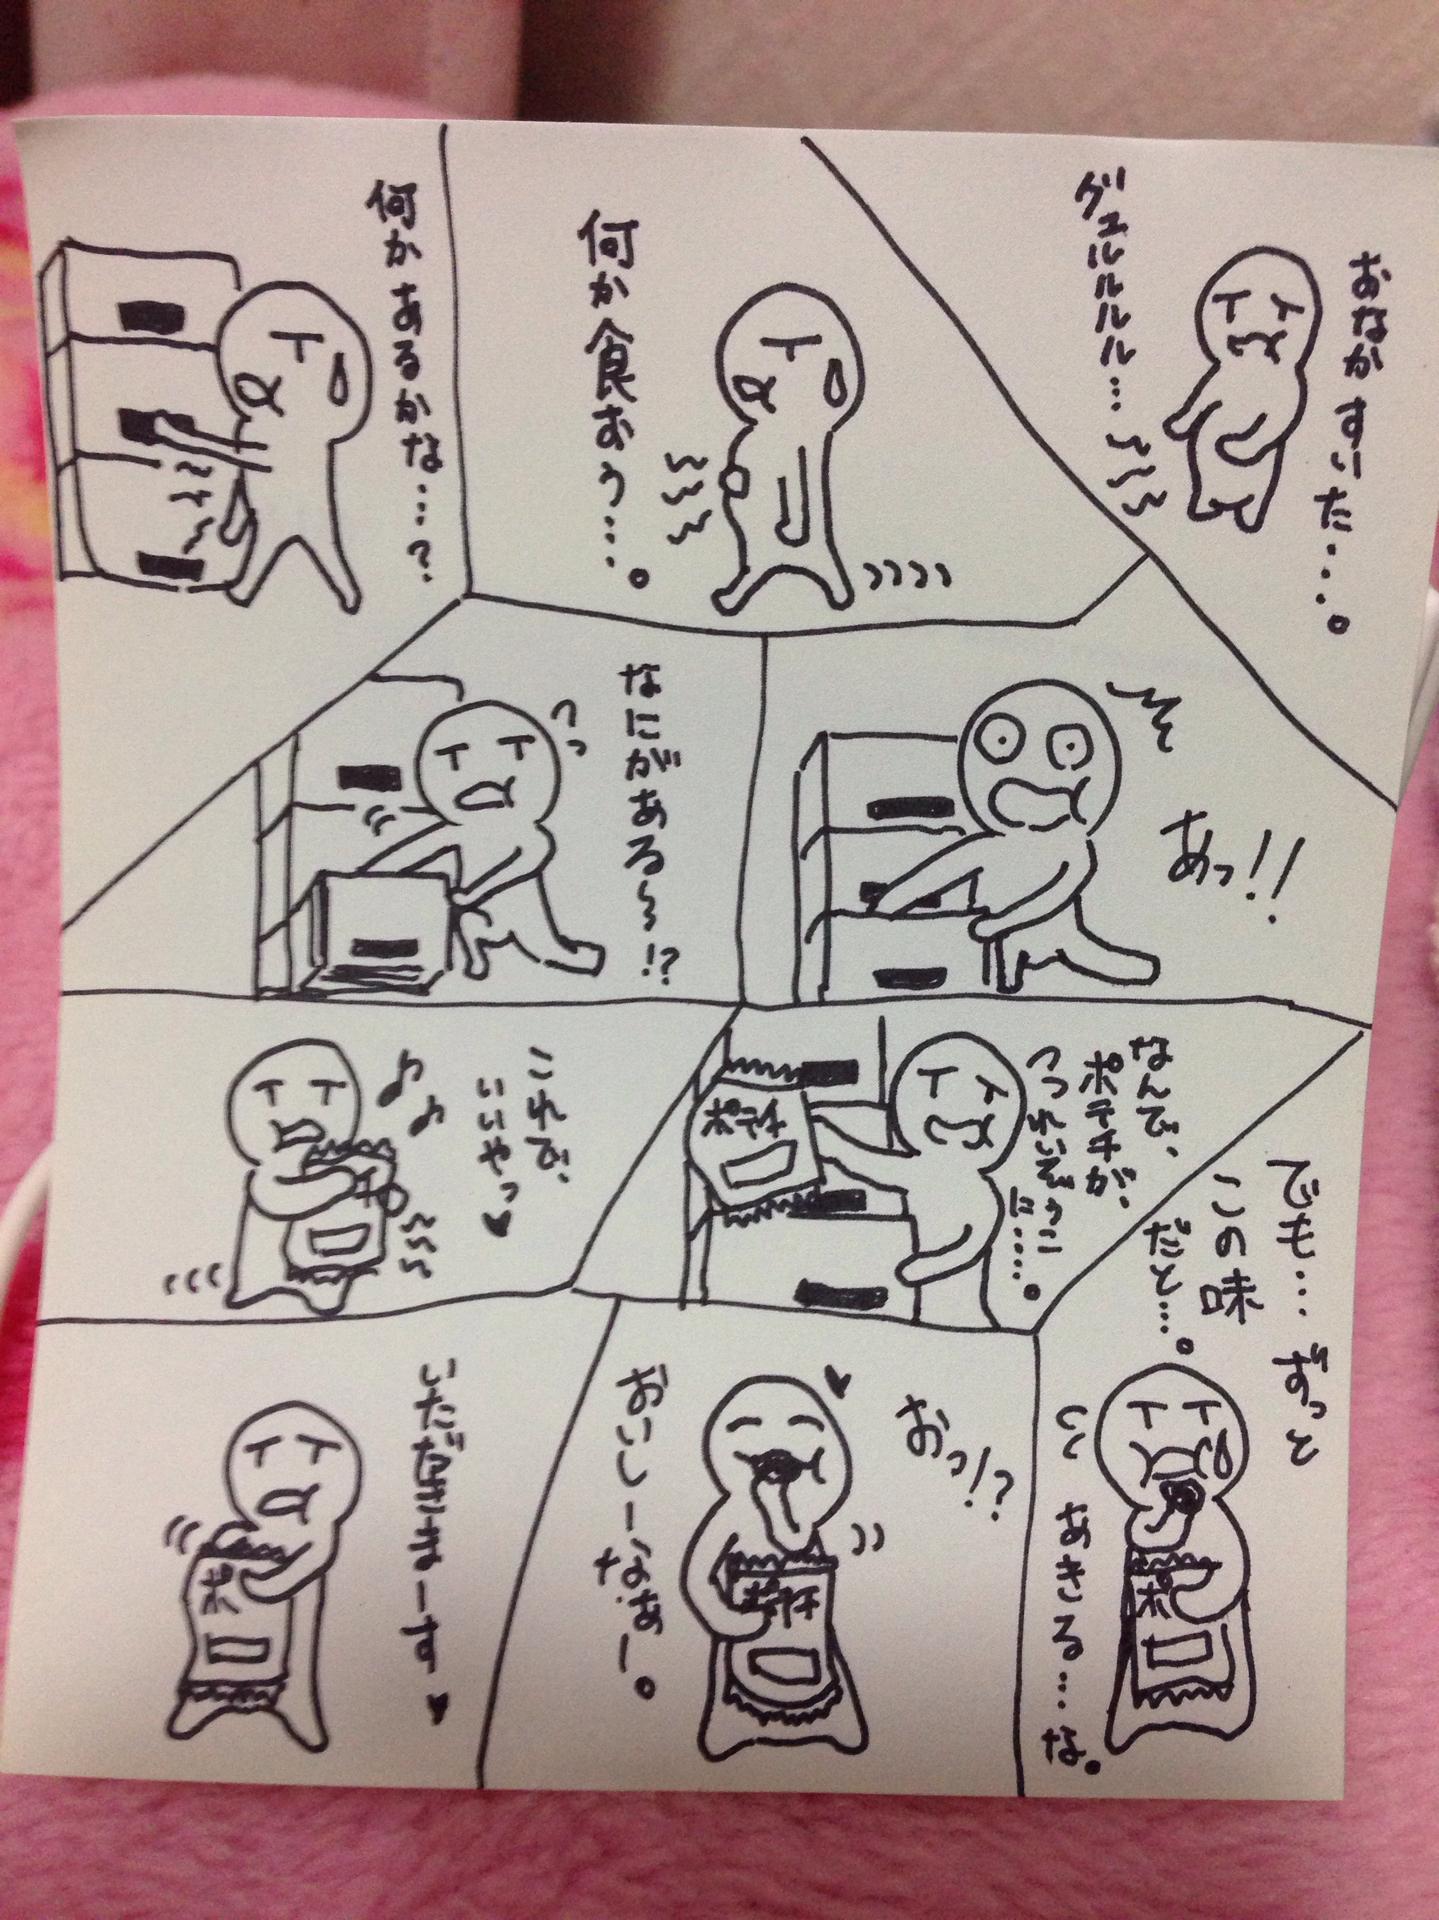 おなかすいた・・・・。
グュルルルル…
何か食おう…。
何かあるかな…?
あっ!!
なにがある〜!?
なんで、
ポテチが、
つつれいぞうこ
に…。
ポテチ
これで、
いいやっ♥
♪♪
いただきまーす♥
ポ
おっ!?
おいしーなぁー。
ポテチ
でも…ずっと
この味
だと…。
あきる…な。
ポ